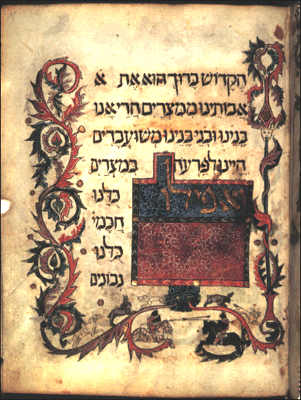 הקדוש ברוך הוא את א
אבותינו ממצרים הרי אנו
בנינו ובני בנינו משועבדים
היינו לפרעה במצרים
ואפילו
כלנו
חכמי
כלנו
נבונים